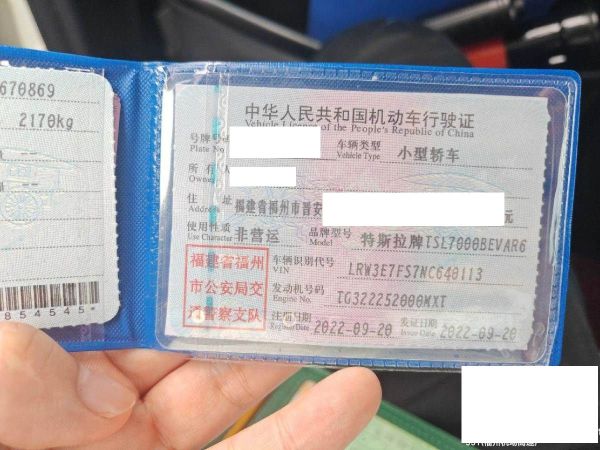 670869
2170kg
854545*
中华人民共和国机动车行驶证
Vehicle License of the People's Republic of China
号牌号码
Plate No.
车辆类型
Vehicle Type
小型轿车
所有人
Owner
住址
Address
福建省福州市晋安
元
使用性质
Use Character
非营运
品牌型号
Model
特斯拉牌TSL7000BEVAR6
福建省福州
市公安局交
通警察支队
车辆识别代号
VIN
LRW3E7FS7NC640113
发动机号码
Engine No.
TG322252000MXT
注册日期
Register Date
2022-09-20
发证日期
Issue Date
2022-09-20